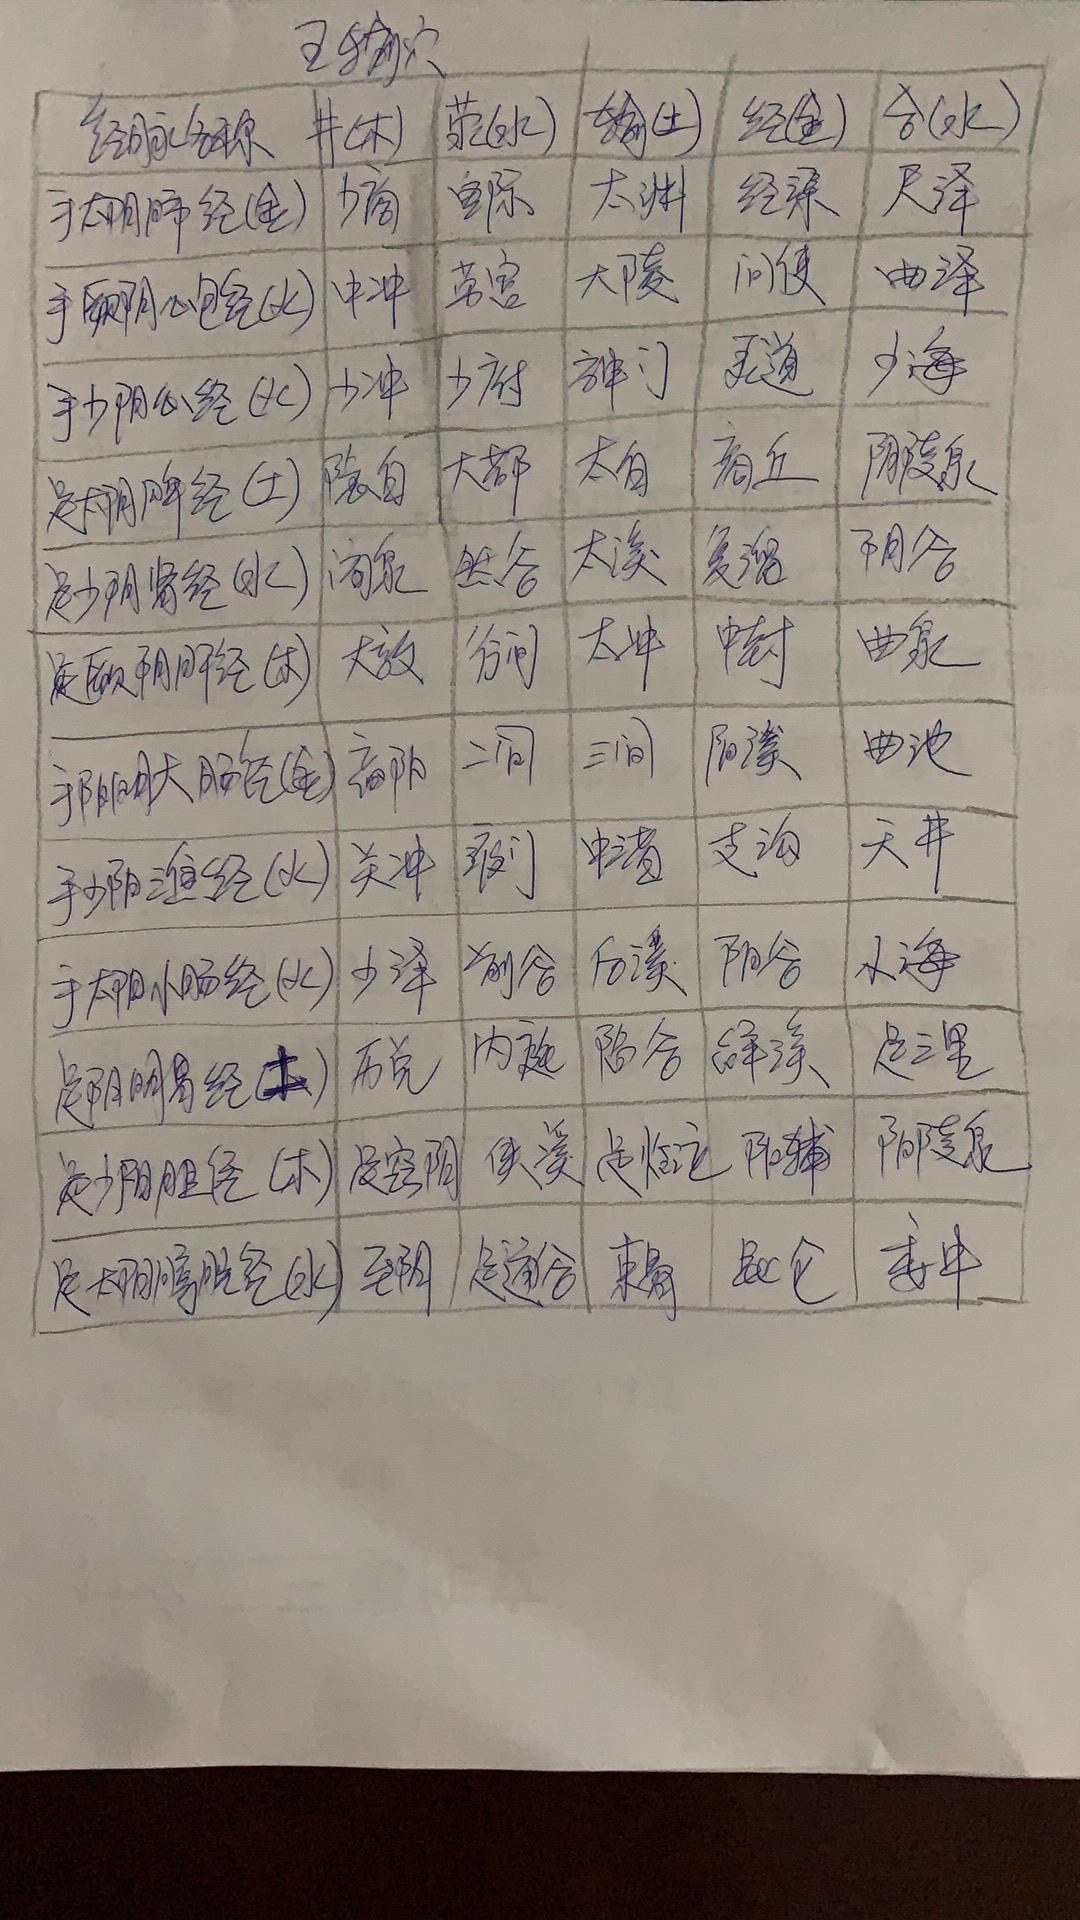 五输穴
经脉名称 井(木) 荥(火) 输(土) 经(金) 合(水)
手太阴肺经(金) 少商 鱼际 太渊 经渠 尺泽
手厥阴心包经(火) 中冲 劳宫 大陵 间使 曲泽
手少阴心经(火) 少冲 少府 神门 灵道 少海
足太阴脾经(土) 隐白 大都 太白 商丘 阴陵泉
足少阴肾经(水) 涌泉 然谷 太溪 复溜 阴谷
足厥阴肝经(木) 大敦 行间 太冲 中封 曲泉
手阳明大肠经(金) 商阳 二间 三间 阳溪 曲池
手少阳三焦经(火) 关冲 液门 中渚 支沟 天井
手太阳小肠经(火) 少泽 前谷 后溪 阳谷 小海
足阳明胃经(土) 历兑 内庭 陷谷 解溪 足三里
足少阳胆经(木) 足窍阴 侠溪 足临泣 阳辅 阳陵泉
足太阳膀胱经(水) 至阴 足通谷 束骨 昆仑 委中